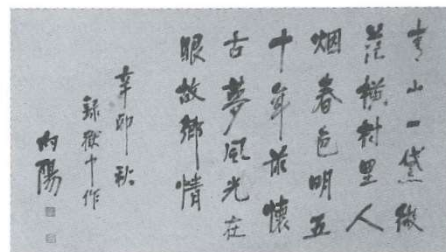 青山一黛微
茫橫村里人
烟春色明五
十年前懷
古夢風光在
眼故鄉情
辛卯秋
錄獄中作
向陽